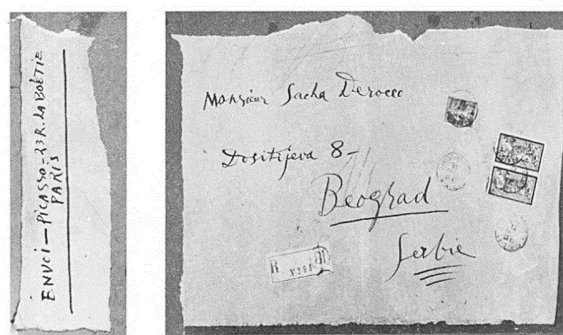 ENVOI — PICASSO - 23 R. LA BOËTIE
PARIS
Monsieur Sacha Derocco
Dositijeva 8 -
Beograd
Serbie
R